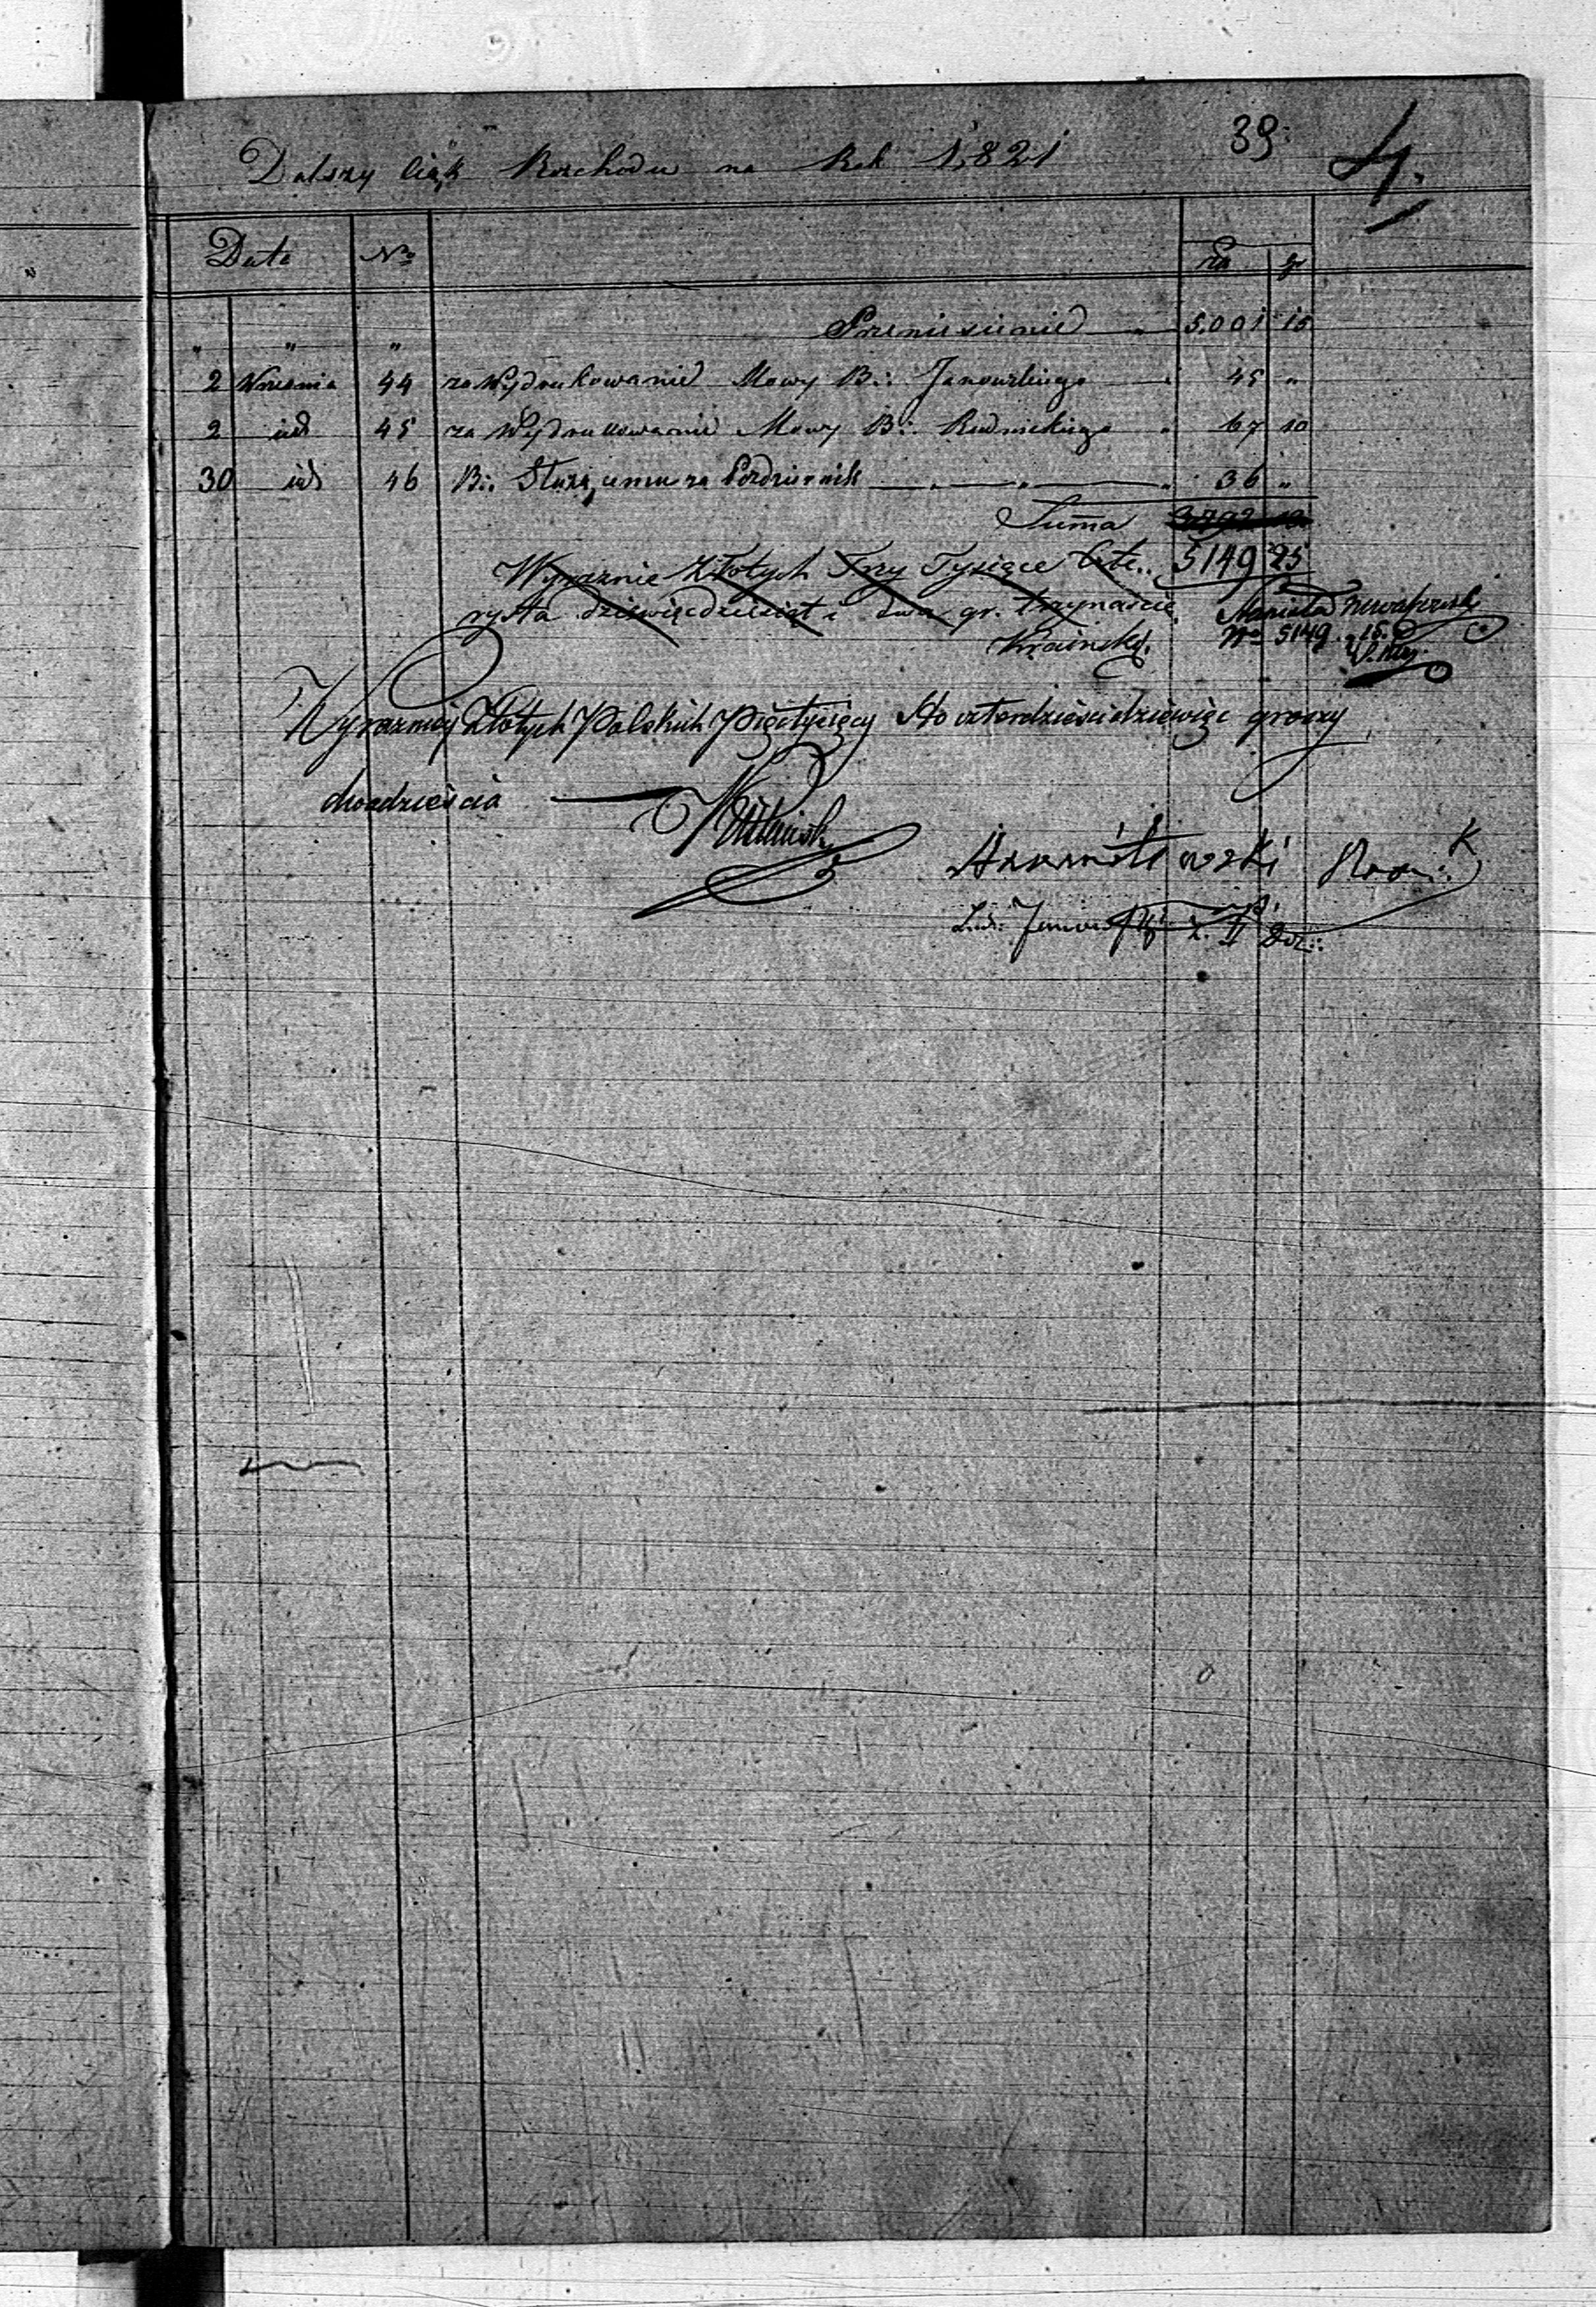 Dalszy Ciąg Rozchodu na Rok 1821 39. 4.
Data No Złp gr
" " " Przeniesienie — " 5,001 15
2 Września 44 za Wydrukowanie Mowy B∴ Janowskiego — " 45 "
2 id 45 za Wydrukowanie Mowy B∴ Rudnickiego " 67 10
30 id 46 B∴ Służącemu za Pazdziernik — " — " — " 36 "
Summa
Wyraznie Złotych Trzy Tysiące Czte.. 5149 25
rysta dziewięćdziesiąt i dwa gr. trzynaście
No 5149
Wyrazniej Złotych Polskich Pięćtysięcy Sto czterdzieści dziewięć groszy
dwadzieścia —